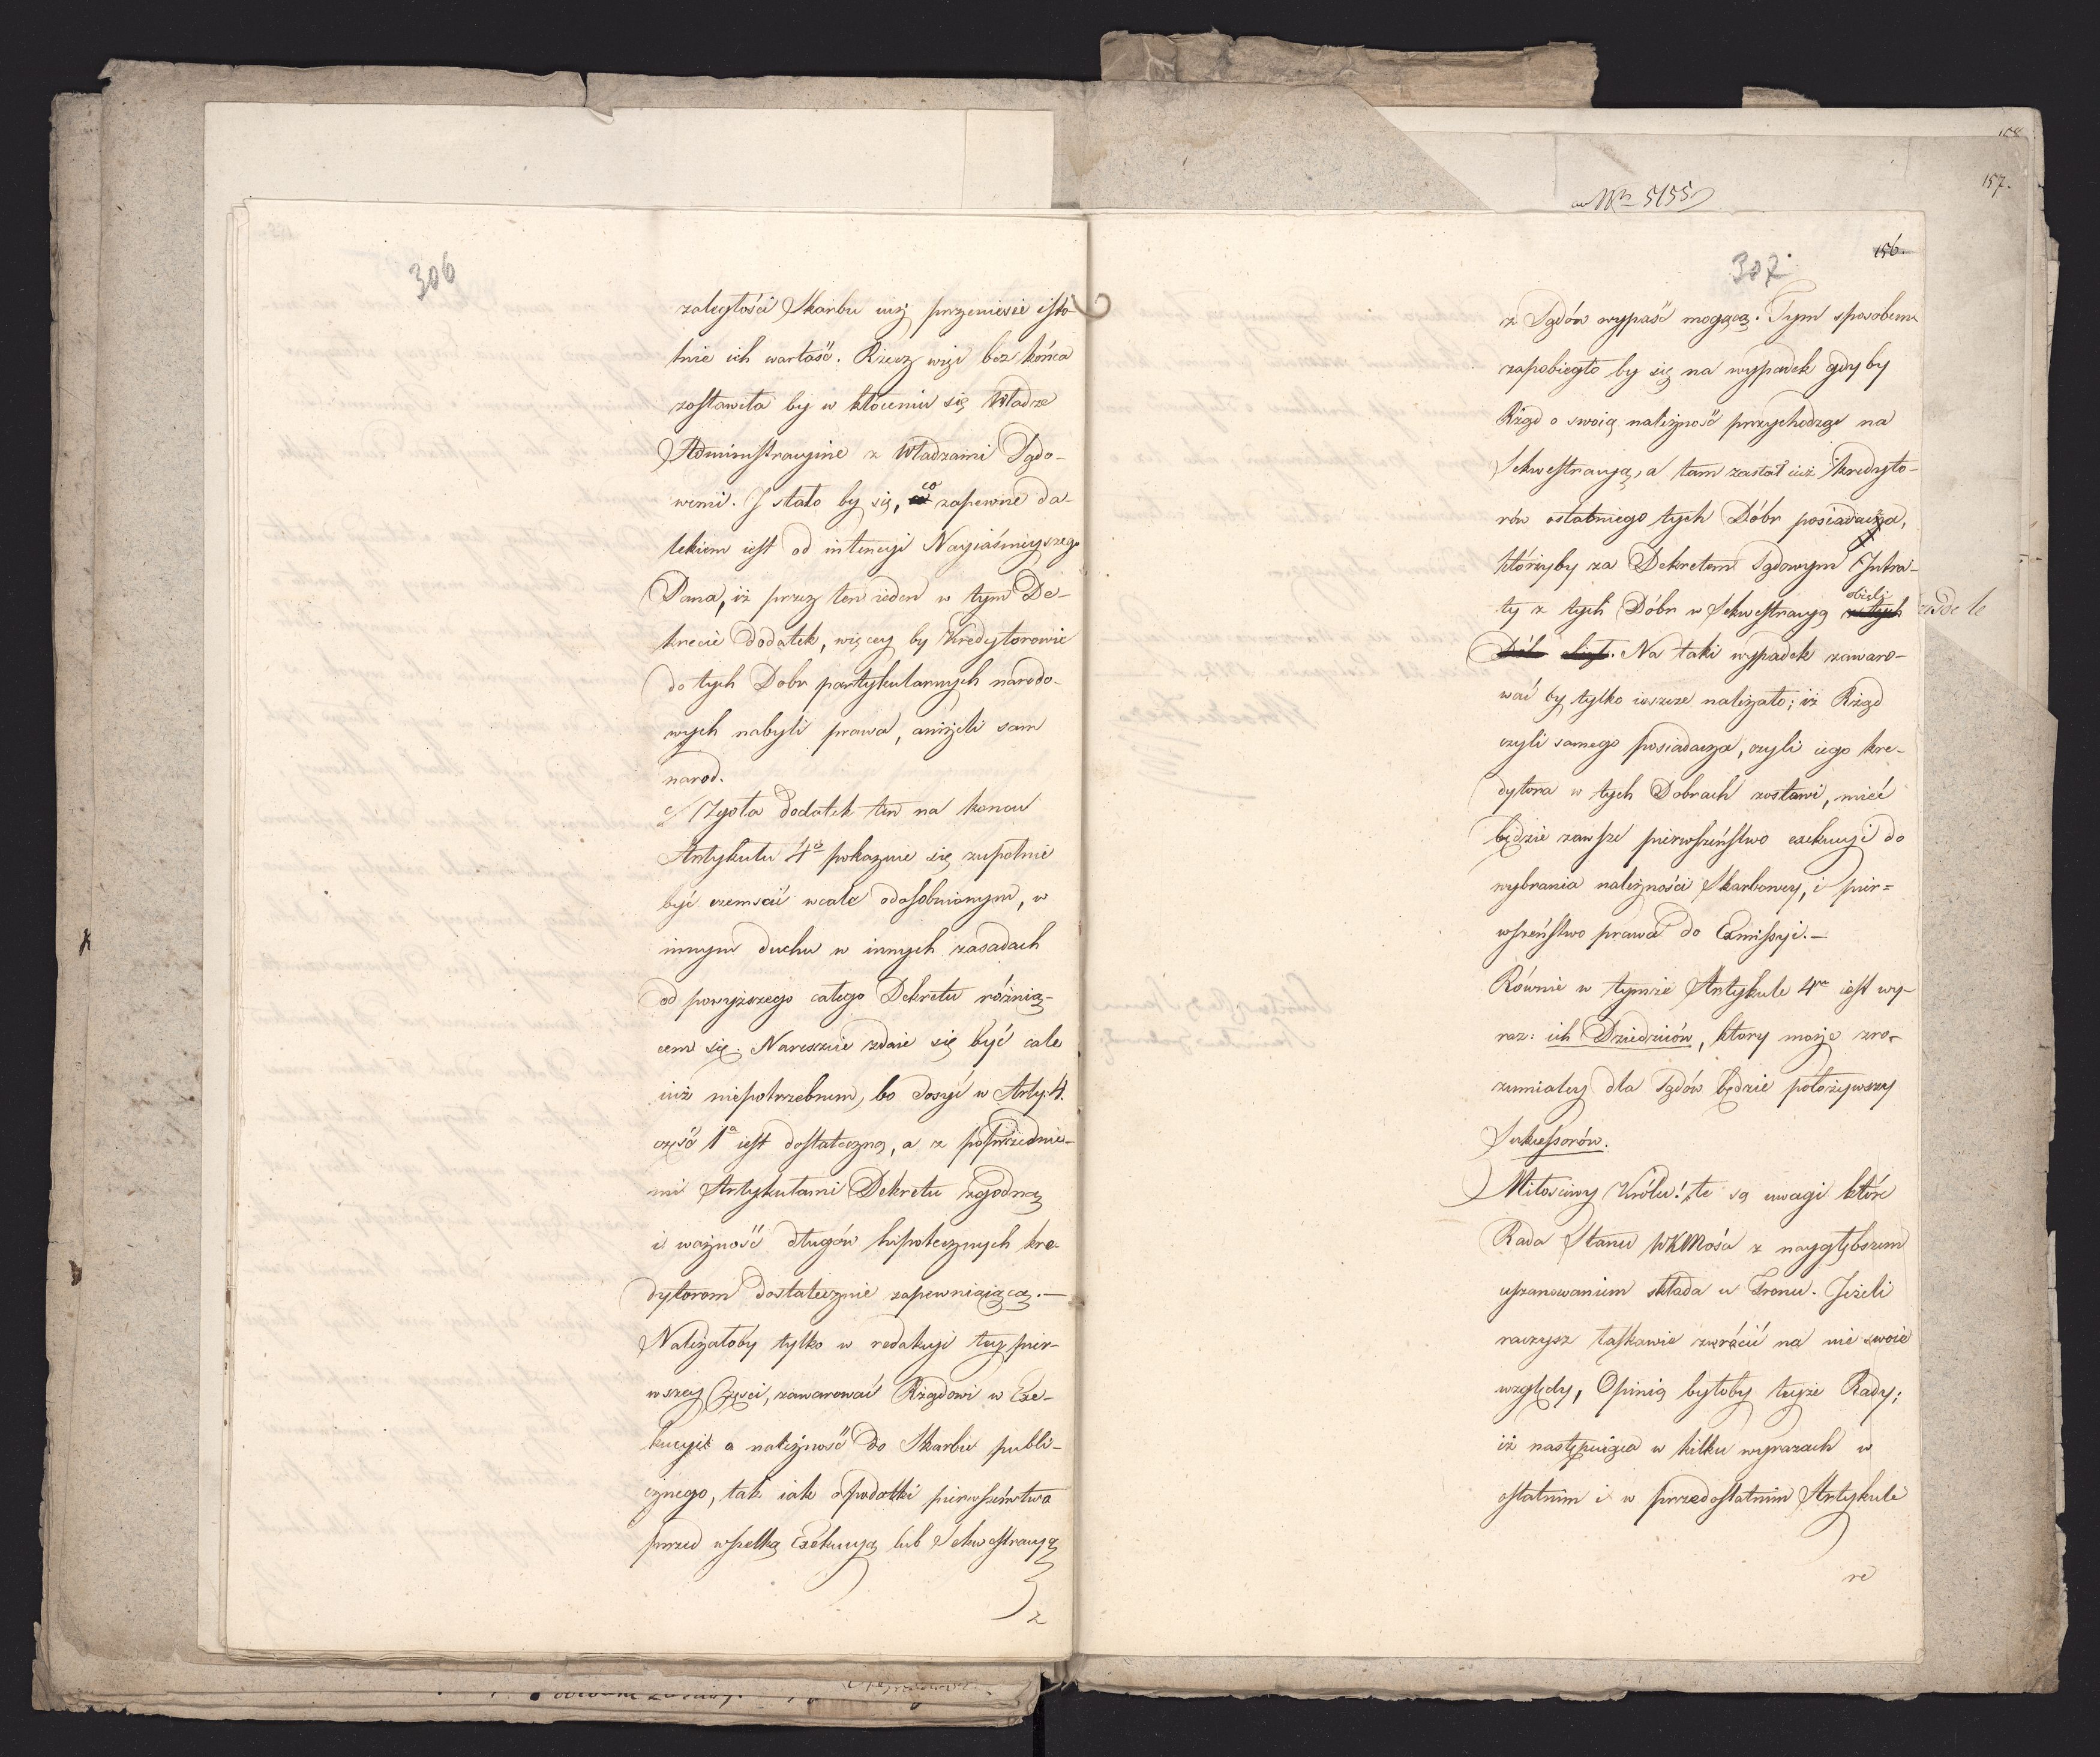 306
zaległości Skarbu iuż przeniesie isto-
tnie ich wartość. Rzecz więc bez końca
zostawała by w kłóceniu się Władze
Administracyine z Władzami Sądo-
wemi. I stało by się, co zapewne da-
lekiem iest od intencyi Nayiaśnieyszego
Pana, iż przez ten ieden w tym De-
krecie dodatek, więcey by Kredytorowie
do tych Dobr partykularnych narodo-
wych nabyli prawa, aniżeli sam
narod.
Zgoła dodatek ten na koncu
Artykułu 4º pokazuie się zupełnie
być czemsiś wcale odosobnionym, w
innym duchu w innych zasadach
od powyższego całego Dekretu różnią-
cem się. Nareszcie zdaie się być cale
iuż niepotrzebnem, bo dosyć w Arty: 4.
część 1ª iest dostateczną, a z poprzednie-
mi Artykułami Dekretu zgodną
i ważność długów hipotecznych kre-
dytorom dostatecznie zapewniaiącą.—
Należałoby tylko w redakcyi tey pier-
wszey Części, zawarować Rządowi w Exe-
kucyi o należność do Skarbu publi-
cznego, tak iak o podatki pierwszeństwo
przed wszelką Exekucyą lub Sekwestracyą
z
158
157.
ad Nº 5155
156.
307
z Sądów wypaść mogącą. Tym sposobem
zapobiegło by się na wypadek gdyby
Rząd o swoią należność przychodząc na
Sekwestracyą, a tam zastał iuż kredyto-
rów ostatniego tych Dóbr posiadacza,
którzyby za Dekretem Sądowym Intra-
ty z tych Dóbr w Sekwestracyą w tych
objęli
Dób objęl. Na taki wypadek zawaro-
wać by tylko ieszcze należało; iż Rząd
czyli samego posiadacza, czyli iego kre-
dytora w tych Dobrach zostawi, mieć
będzie zawsze pierwszeństwo exekucyi do
wybrania należności Skarbowey, i pier-
wszeństwo prawa do Exmissyi.—
Równie w tymże Artykule 4m iest wy-
raz: ich Dziedziców, ktory może zro-
zumialey dla Sądów będzie położywszy
Sukcessorów.
Miłościwy Królu! te są uwagi które
Rada Stanu WKMości z naygłębszem
uszanowaniem składa u Tronu. Jeżeli
raczysz łaskawie zwrócić na nie swoie
względy, Opinią byłoby teyże Rady;
iż następuiąca w kilku wyrazach w
ostatnim i w przedostatnim Artykule
re